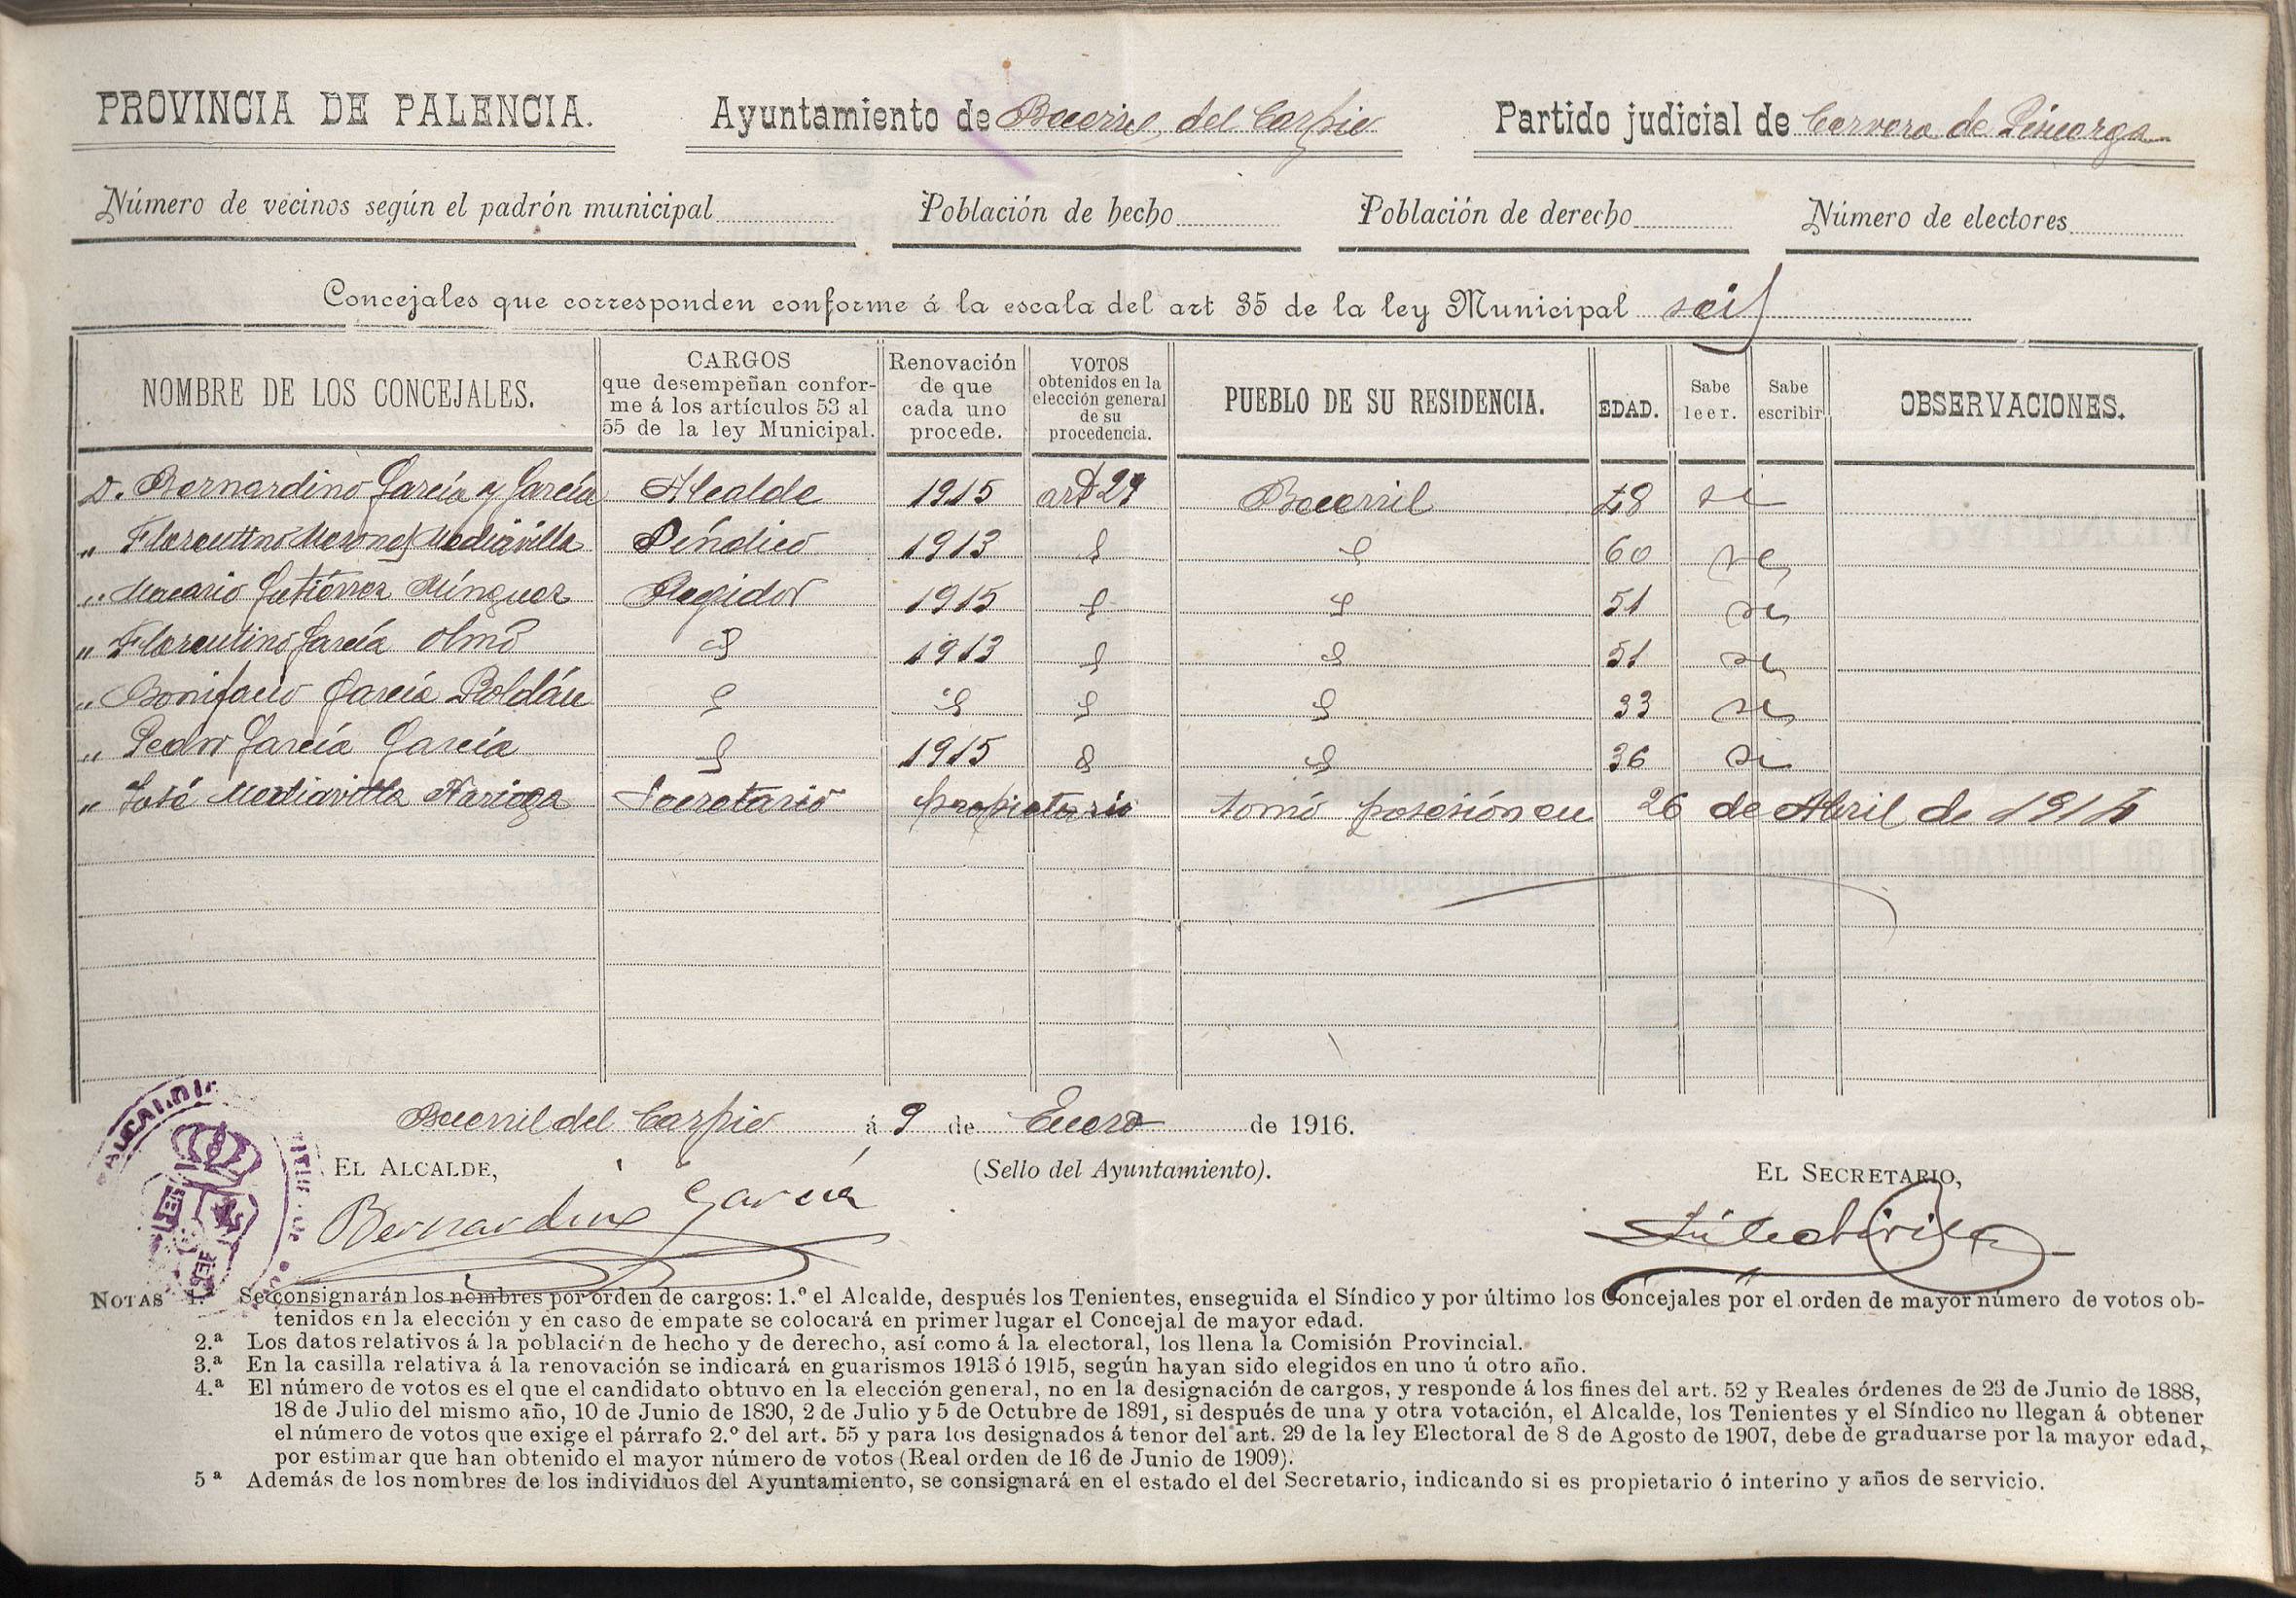 PROVINCIA DE PALENCIA. Ayuntamiento de Becerril del Carpio Partido judicial de Cervera de Pisuerga
Número de vecinos según el padrón municipal Población de hecho Población de derecho Número de electores
Concejales que corresponden conforme á la escala del art 35 de la ley Municipal seis
NOMBRE DE LOS CONCEJALES. CARGOS que desempeñan conforme á los artículos 53 al 55 de la ley Municipal. Renovación de que cada uno procede. VOTOS obtenidos en la elección general de su procedencia. PUEBLO DE SU RESIDENCIA. EDAD. Sabe leer. Sabe escribir OBSERVACIONES.
D. Bernardino García y García Alcalde 1915 artº 29 Becerril 48 si
" Florentino Mediavilla Síndico 1913 " " 60 si
" Macario Gutiérrez Mínguez Regidor 1915 " " 51 si
" Florentino García Olmo " 1913 " " 51 si
" Bonifacio García Roldán " " " " 33 si
" Pedro García García " 1915 " " 36 si
" José Mediavilla Secretario propietario tomó posesión en 26 de Abril de 1914
Becerril del Carpio á 9 de Enero de 1916.
ALCALDIA
EL ALCALDE, (Sello del Ayuntamiento). EL SECRETARIO,
Bernardino García
NOTAS 1.ª Se consignarán los nombres por orden de cargos: 1.º el Alcalde, después los Tenientes, enseguida el Síndico y por último los Concejales por el orden de mayor número de votos ob-
tenidos en la elección y en caso de empate se colocará en primer lugar el Concejal de mayor edad.
2.ª Los datos relativos á la población de hecho y de derecho, así como á la electoral, los llena la Comisión Provincial.
3.ª En la casilla relativa á la renovación se indicará en guarismos 1913 ó 1915, según hayan sido elegidos en uno ú otro año.
4.ª El número de votos es el que el candidato obtuvo en la elección general, no en la designación de cargos, y responde á los fines del art. 52 y Reales órdenes de 23 de Junio de 1888,
18 de Julio del mismo año, 10 de Junio de 1890, 2 de Julio y 5 de Octubre de 1891, si después de una y otra votación, el Alcalde, los Tenientes y el Síndico no llegan á obtener
el número de votos que exige el párrafo 2.º del art. 55 y para los designados á tenor del art. 29 de la ley Electoral de 8 de Agosto de 1907, debe de graduarse por la mayor edad,
por estimar que han obtenido el mayor número de votos (Real orden de 16 de Junio de 1909).
5ª Además de los nombres de los individuos del Ayuntamiento, se consignará en el estado el del Secretario, indicando si es propietario ó interino y años de servicio.